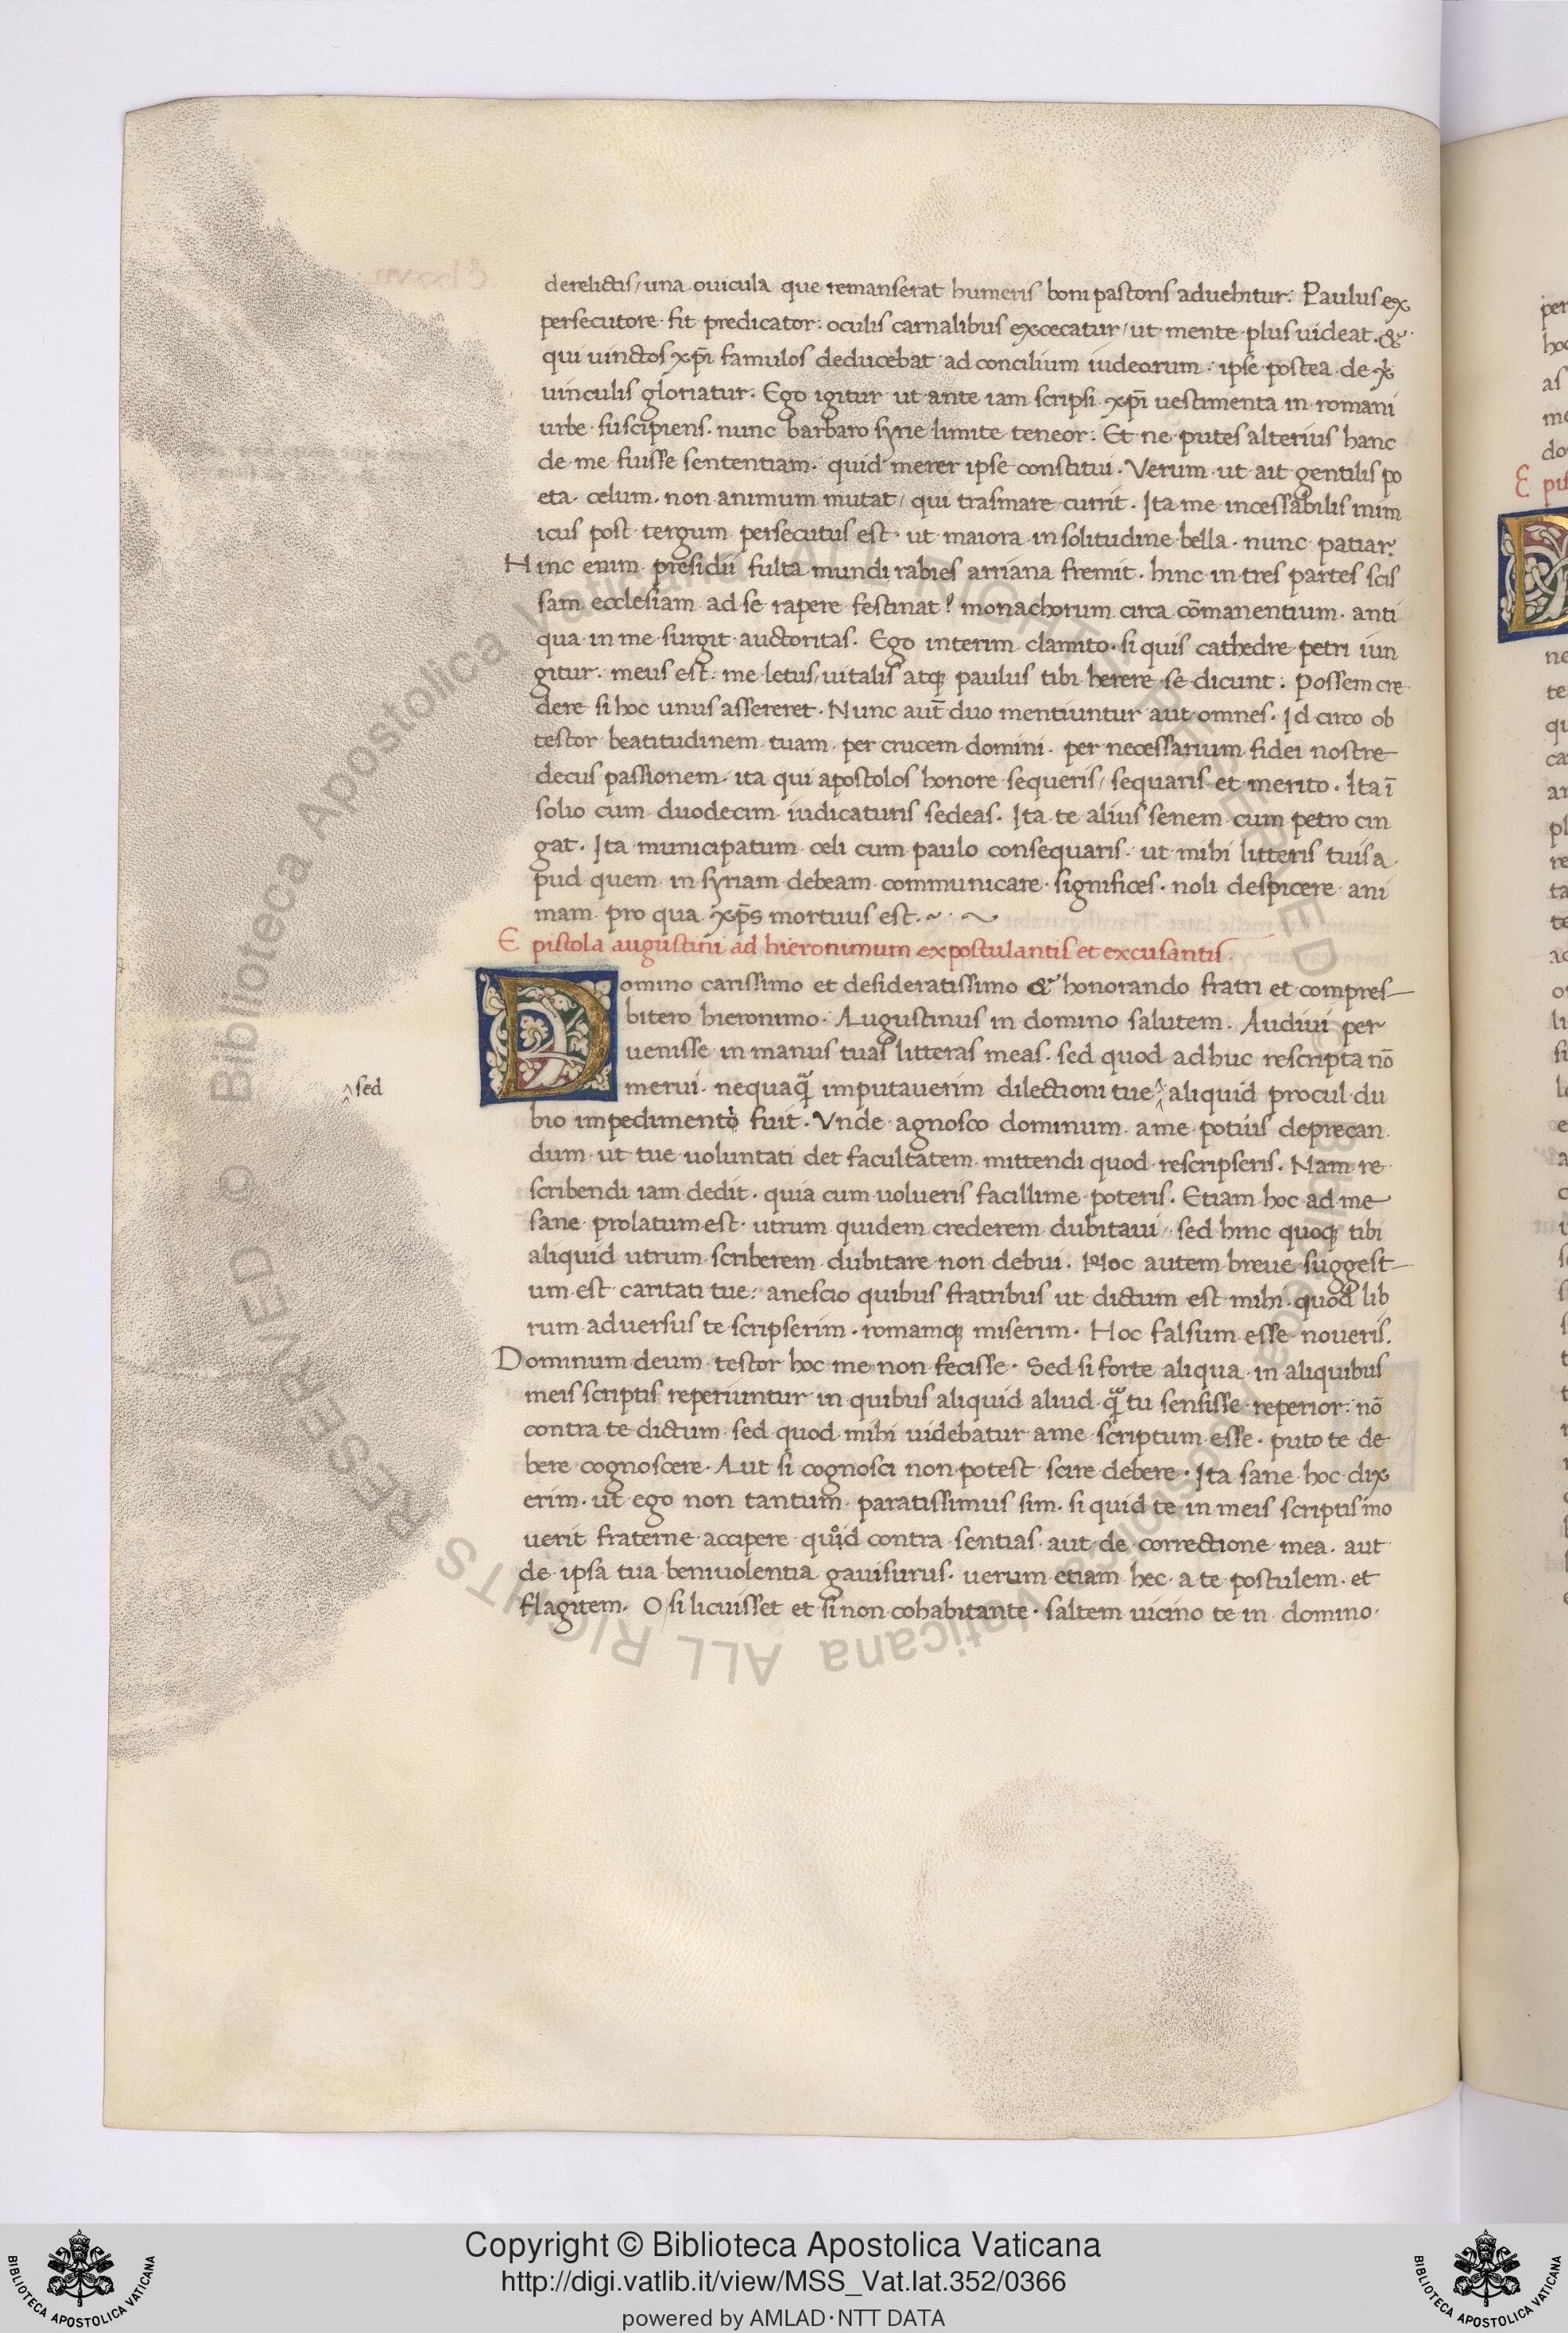 derelictis, una ouicula que remanserat humeris boni pastoris aduehitur: Paulus ex
persecutore fit predicator: oculis carnalibus excecatur, ut mente plus uideat. &
qui uinctos xp̄i famulos deducebat ad concilium iudeorum. ipse postea de x̄p̄i
uinculis gloriatur. Ego igitur ut ante iam scripsi xp̄i uestimenta in romani
urbe suscipiens. nunc barbaro syrie limite teneor: Et ne putes alterius hanc
de me fuisse sententiam. quid merer ipse constitui. Verum ut ait gentilis po
eta. celum. non animum mutat, qui trasmare currit. Ita me incessabilis inim
icus post tergum persecutus est. ut maiora in solitudine bella. nunc patiar.
Hinc enim presidii fulta mundi rabies arriana fremit. hinc in tres partes scis
sam ecclesiam ad se rapere festinat? monachorum circa cōmanentium. anti
qua in me surgit auctoritas. Ego interim clamito. si quis cathedre petri iun
gitur. meus est: me letus, uitalis atq; paulus tibi herere se dicunt. Possem cre
dere si hoc unus assereret. Nunc aut̄ duo mentiuntur aut omnes. Id circo ob
testor beatitudinem tuam. per crucem domini. per necessarium fidei nostre
decus passionem. ita qui apostolos honore sequeris, sequaris et merito. Ita ī
solio cum duodecim iudicaturis sedeas. Ita te alius senem cum petro cin
gat. Ita municipatum celi cum paulo consequaris. ut mihi litteris tuis a
pud quem in syriam debeam communicare. significes. noli despicere ani
mam pro qua xp̄s mortuus est. ~ · ~
Epistola augustini ad hieronimum expostulantis et excusantis.
Domino carissimo et desideratissimo & honorando fratri et compres-
bitero hieronimo. Augustinus in domino salutem. Audiui per
uenisse in manus tuas litteras meas. sed quod adhuc rescripta nō
^ sed
merui. nequaq̄ imputauerim dilectioni tue ^ aliquid procul du
bio impedimento fuit. Vnde agnosco dominum. ame potius deprecan
dum. ut tue uoluntati det facultatem mittendi quod rescripseris. Nam re
scribendi iam dedit. quia cum uolueris facillime poteris. Etiam hoc ad me
sane prolatum est. utrum quidem crederem dubitaui, sed hinc quoq; tibi
aliquid utrum scriberem dubitare non debui. Hoc autem breue suggest-
um est caritati tue: anescio quibus fratribus ut dictum est mihi. quod lib
rum aduersus te scripserim. romamq; miserim. Hoc falsum esse noueris.
Dominum deum testor hoc me non fecisse. Sed si forte aliqua in aliquibus
meis scriptis reperiuntur in quibus aliquid aliud q̄ tu sensisse reperior: nō
contra te dictum sed quod mihi uidebatur ame scriptum esse. puto te de
bere cognoscere. Aut si cognosci non potest scire debere. Ita sane hoc dix
erim. ut ego non tantum paratissimus sim. si quid te in meis scriptis mo
uerit fraterne accipere quid contra sentias. aut de correctione mea. aut
de ipsa tua beniuolentia gauisurus. uerum etiam hec a te postulem. et
flagitem. O si licuisset et si non cohabitante. saltem uicino te in domino
Copyright © Biblioteca Apostolica Vaticana
http://digi.vatlib.it/view/MSS_Vat.lat.352/0366
powered by AMLAD·NTT DATA